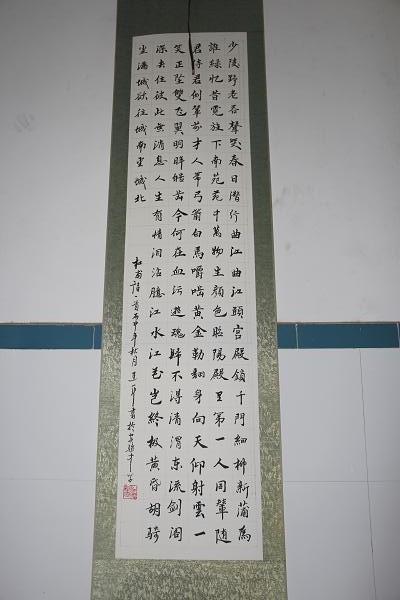 少陵野老吞聲哭春日潛行曲江曲江頭宮殿鎖千門細柳新蒲為
誰綠憶昔霓旌下南苑苑中萬物生顏色昭陽殿里第一人同輦隨
君侍君側輦前才人帶弓箭白馬嚼嚙黃金勒翻身向天仰射雲一
笑正墜雙飞翼明眸皓齒今何在血污遊魂歸不得清渭東流劍閣
深去住彼此無消息人生有情泪沾臆江水江花豈終極黃昏胡騎
尘滿城欲往城南望城北
杜甫詩一首丙申年秋月書於